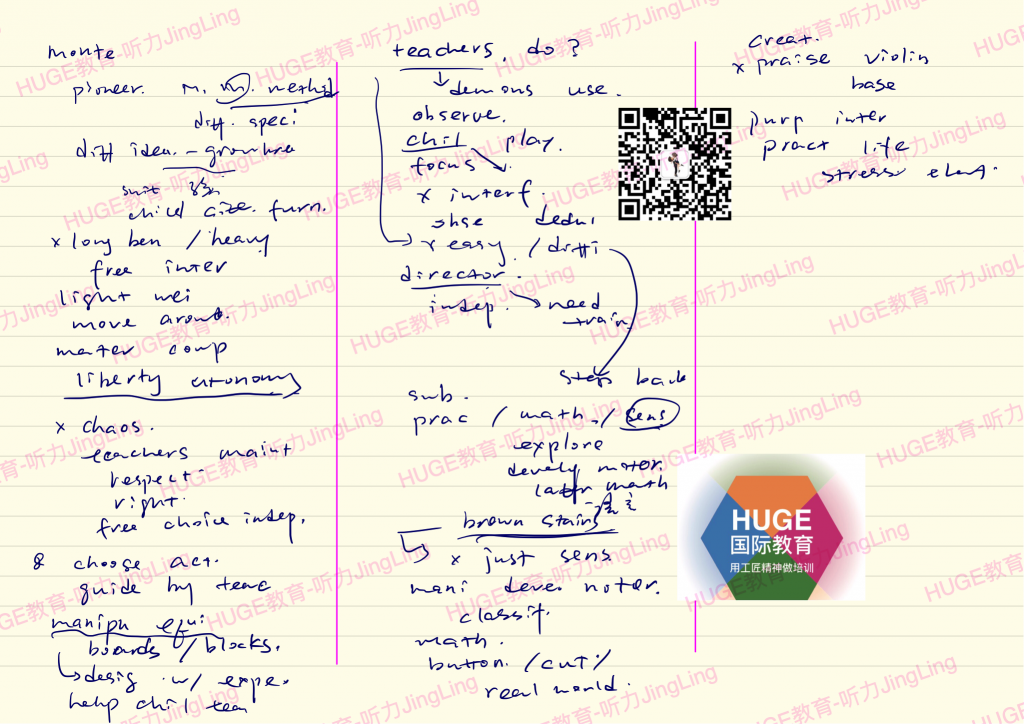 monte
pioneer. M. m. method
diff. speci
diff idea. - grown
suit
child size. furn.
x long ben / heavy
free inter
light wei
move around.
mater comp
liberty autonomy
x chaos.
teachers maint
respect.
right.
free choice indep.
& choose act.
guide by teac
manipu equi
boards / blocks.
desig w/ expe.
help chil lear
teachers. do?
demons use.
observe.
chil play.
focus
x interf.
obse dedui
x easy / diffi
director.
indep. need
train
steps back
sub.
prac / math / sens
explore
develp motor.
later math
brown stairs
x just sens
mani deve. motor.
classif.
math.
button. / cut
real world.
creat.
x praise violin
base
purp inter
pract life
stress elem.
HUGE
国际教育
用工匠精神做培训
HUGE教育-听力JingLing